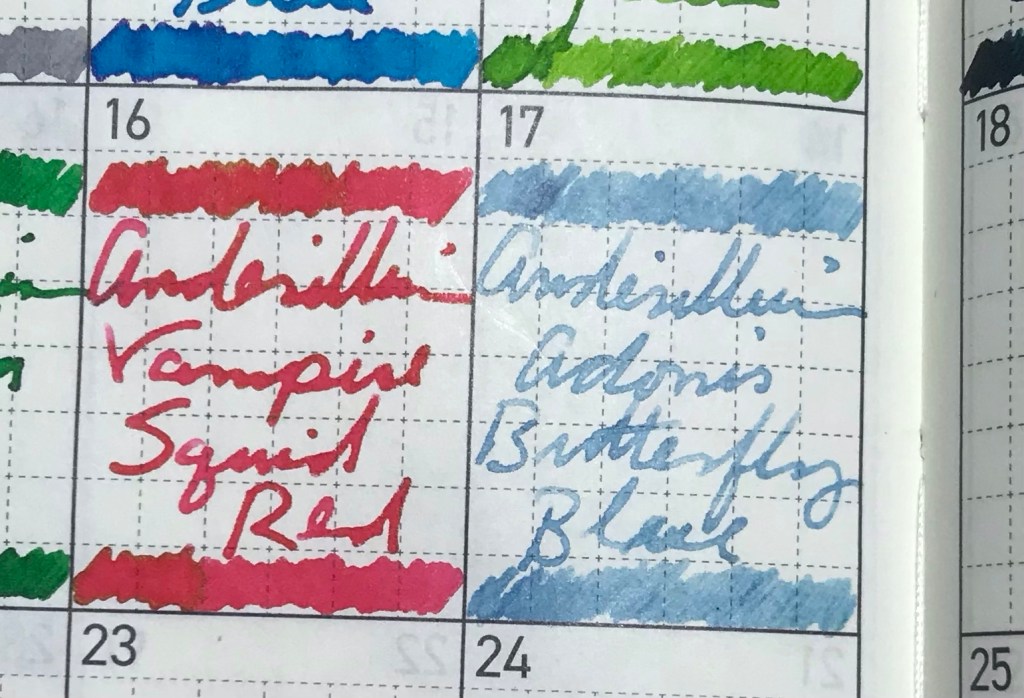 Blue
16
17
18
Anderillium
Vampire
Squid
Red
Anderillium
Adonis
Butterfly
Blue
23
24
25